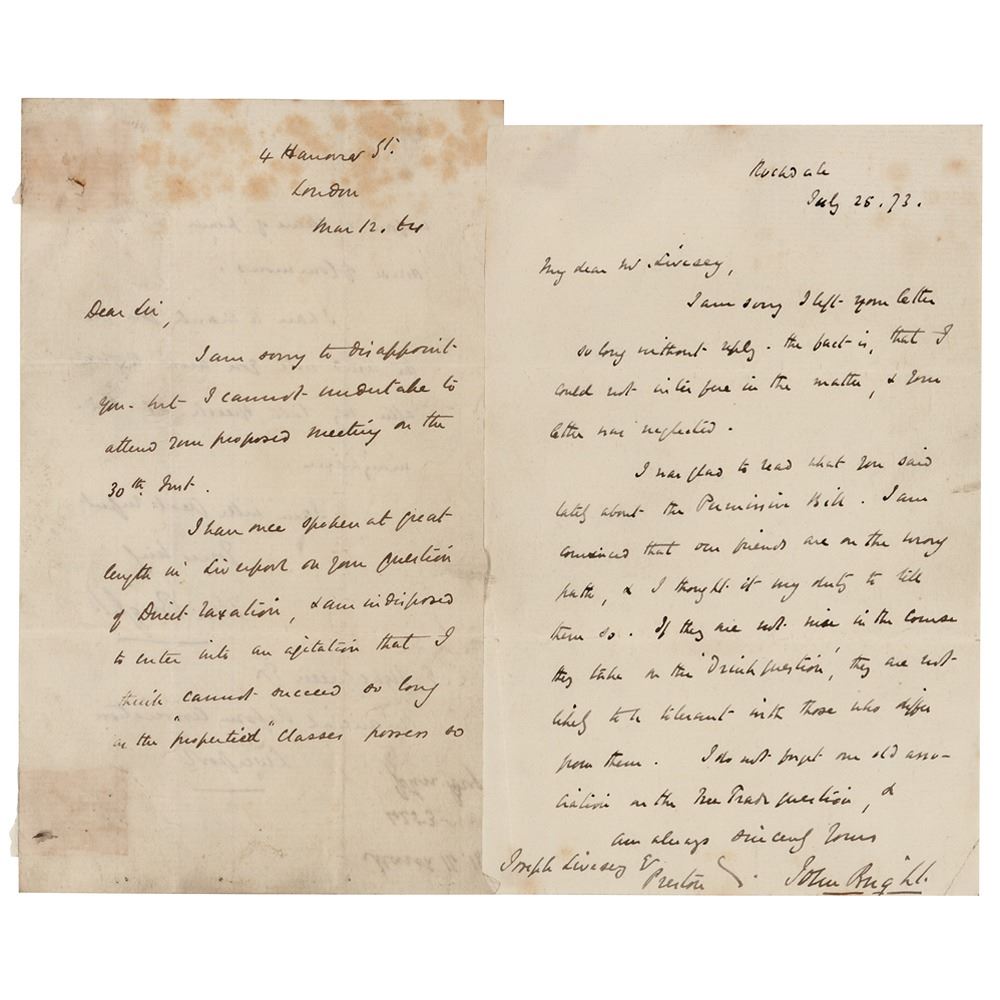 4 Hanover St.
London
Mar 12. 64
Dear Sir,
I am sorry to disappoint
you - but I cannot undertake to
attend your proposed meeting on the
30th Inst.
I have once spoken at great
length in Liverpool on your question
of Direct Taxation, & am indisposed
to enter into an agitation that I
think cannot succeed so long
as the "propertied" classes possess so
Rochdale
July 26. 73.
My dear Mr Livesey,
I am sorry I left your letter
so long without reply - the fact is, that I
could not interfere in the matter, & your
letter was neglected.
I was glad to read what you said
lately about the Permissive Bill. I am
convinced that our friends are on the wrong
path, & I thought it my duty to tell
them so. If they are not wise in the course
they take on the 'Drink question', they are not
likely to be tolerant with those who differ
from them. I do not forget our old asso-
ciation on the Free Trade question, &
am always sincerely yours
John Bright.
Joseph Livesey Er
Preston